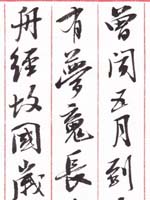 曾闻五月到
有梦魂长
舟经故国岁